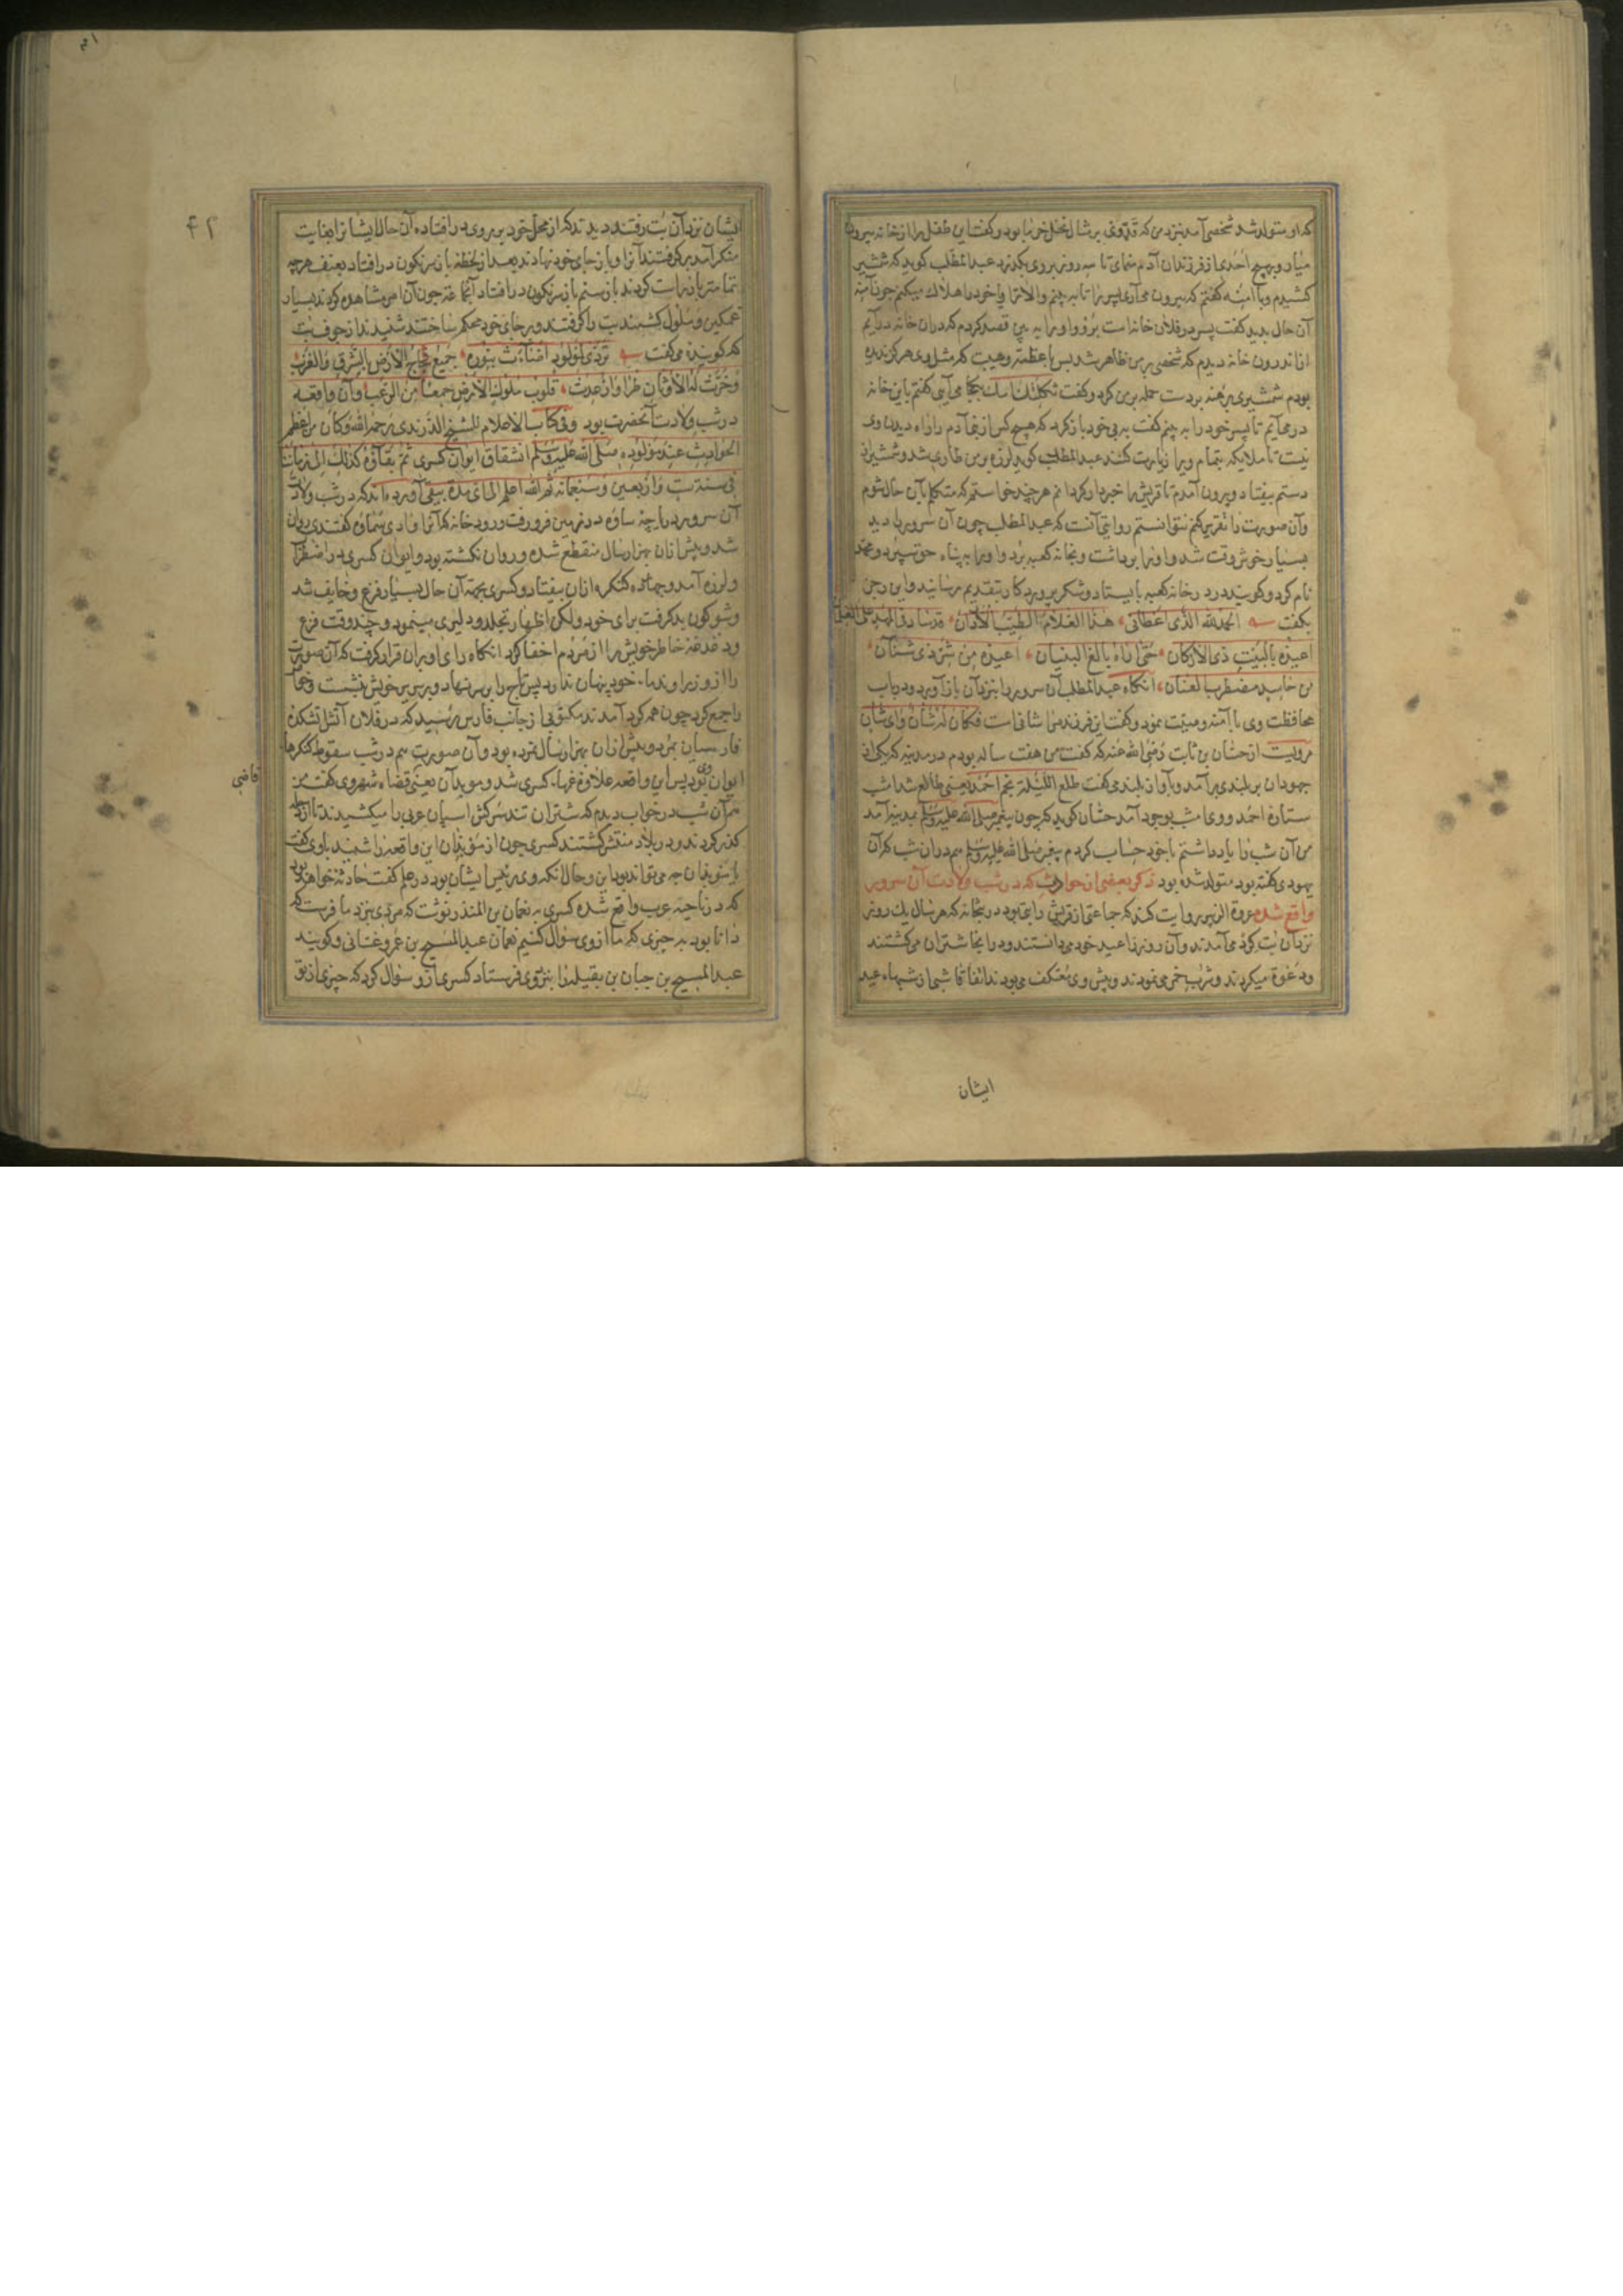 که او متولد شد شخصی آمد نزد من که قد وی بر مثال نخل خرما بود و گفت این طفل را از خانه بیرون
میار و بهیچ احدی از فرزندان آدم منمای تا سه روز بروی بگذرد عبدالمطلب کوید که شمشیر
کشیدم و با آمنه گفتم که بیرون می آری پسر را تا به بینم والا ترا و یا خود را هلاک میکنم چون آمنه
آن حال بدید کفت پسر در فلان خانه است برو و او را به بین قصد کردم که در آن خانه در آیم
از اندرون خانه دیدم که شخصی بر من ظاهر شد بس با عظمت و هیبت که مثل وی هرگز ندیده
بودم شمشیری برهنه بردست حمله بر من کرد و کفت ثکلتک امک بکجا می آیی کفتم باین خانه
در می آیم تا پسر خود را به بینم کفت به پی خود باز کرد که هیچ کس از بنی آدم را راه دیدن وی
نیست تا ملایکه بتمام ویرا زیارت کنند عبدالمطلب کوید لرزه بر من طاری شد و شمشیر از
دستم بیفتاد و بیرون آمدم تا قریش را خبردار کردانم هر چند خواستم که متکلم بآن حال شوم
وآن صورت را تقریر کنم نتوانستم روایتی آنست که عبدالمطلب چون آن سرور را دید
بسیار خوش وقت شد و او را برداشت و بخانه کعبه برد و او را به پناه حق سپرد و محمد
نام کرد و کویند در در خانه کعبه بایستاد و شکر پروردکار بتقدیم رسانید و این رجز
بکفت الحمد لله الذی اعطانی هذا الغلام الطیب الاردان قد ساد فی المهد علی الغلمان
اعیذه بالبیت ذی الارکان حتی اراه بالغ البنیان اعیذه من شر ذی شنآن
من حاسد مضطرب العنان انکاه عبدالمطلب آن سرور را بنزد آن باز آورد و در باب
محافظت وی با آمنه وصیت نمود و کفت این فرزند مرا شانی است فکان له شان وای شان
مرویست از حسان بن ثابت رضی الله عنه که کفت من هفت ساله بودم در مدینه که یکی از
جهودان بر بلندی بر آمد و بآواز بلند می کفت طلع اللیلة نجم احمد یعنی طالع شد امشب
ستاره احمد و وی امشب بوجود آمد حسان کوید که چون پیغمبر صلی الله علیه وسلم بمدینه آمد
من آن شب را یاد داشتم باخود حساب کردم پیغمبر صلی الله علیه وسلم هم در آن شب که آن
یهودی کفته بود متولد شده بود ذکر بعضی از حوادث که در شب ولادت آن سرور
واقع شده عروة الزبیر روایت کند که جماعتی از قریش را بتی بود در بتخانه که هر سال یک روز
نزد آن بت کرد می آمدند و آن روز را عید خود می دانستند و در انجا شتران می کشتند
و دعوة میکردند و شرب خمر می نمودند و پیش وی معتکف می بودند اتفاقا شبی از شبهاء عید
ایشان
۴۱
۴۲
ایشان نزد آن بت رفتند دیدند که از محل خود بر روی در افتاده آن حال ایشانرا بغایت
منکر آمد بر کرفتند آنرا و باز جای خود نهادند بعد از لحظه باز سرنکون در افتاد بعنف هرچه
تمامتر باز راست کردند باز سیم باز سرنکون در افتاد آنجماعة چون آن امر مشاهده کردند بسیار
غمکین و ملول کشتند بت را کرفتند و بر جای خود محکم ساختند شنیدند از جوف بت
که کوینده می کفت تردی لمولود اضاءت بنوره جمیع فجاج الارض بالشرق والغرب
وخرت له الاوثان طرا وارعدت قلوب ملوک الارض جمعا من الرعب و آن واقعه
در شب ولادت آنحضرت بود وفی کتاب الاعلام للشیخ الزرندی رحمه الله وکان من اعظم
الحوادث عند مولوده صلی الله علیه وسلم انشقاق ایوان کسری ثم بقاؤه کذلک الی زماننا
فی سنة ست واربعین وسبعمائة ثم الله اعلم الی ای مدة یبقی آورده اند که در شب ولادت
آن سرور دریاچه ساوه در زمین فرو رفت و رود خانه که آنرا وادی سماوه کفتندی روان
شد و پیش از آن بهزار سال منقطع شده و روان نکشته بود و ایوان کسری در اضطراب
و لرزه آمد و چهارده کنکره از آن بیفتاد و کسری بجهة آن حال بسیار فزع و خایف شد
وشوکون بد کرفت برای خود و لکن اظهار تجلد و دلیری مینمود و چند وقت فزع
و دغدغه خاطر خویش را از مردم اخفا کرد انکاه رای او بر آن قرار کرفت که آن صورت
را از وزرا و ندماء خود پنهان ندارد پس تاج را بر سر نهاد و بر سریر خویش نشست و همه
را جمع کرد چون همه کرد آمدند مکتوبی از جانب فارس رسید که در فلان آتش آتشکده
فارسیان بمرد و پیش از آن بهزار سال نمرده بود و آن صورت هم در شب سقوط کنکرهاء
ایوان وی بود پس این واقعه علاوه غمهاء کسری شد و موبدان یعنی قضاة شهر وی کفت من
هم آن شب در خواب دیدم که شتران تند سرکش اسپان عربی را میکشیدند تا از دجله
کذر کردند و در بلاد منتشر کشتند کسری چون از موبدان این واقعه را شنید با وی کفت
یا موبدان چه می تواند بود این و حال آنکه وی رئیس ایشان بود در علم کفت حادثه خواهد بود
که در ناحیه عرب واقع شده کسری به نعمان بن المنذر نوشت که مردی بنزد ما فرست که
دانا بود به چیزی که ما از وی سؤال کنیم نعمان عبدالمسیح بن عمرو غسانی و کویند
عبدالمسیح بن حیان بن بقیله را بنزد وی فرستاد کسری از و سؤال کرد که چیزی از تو
قاضی